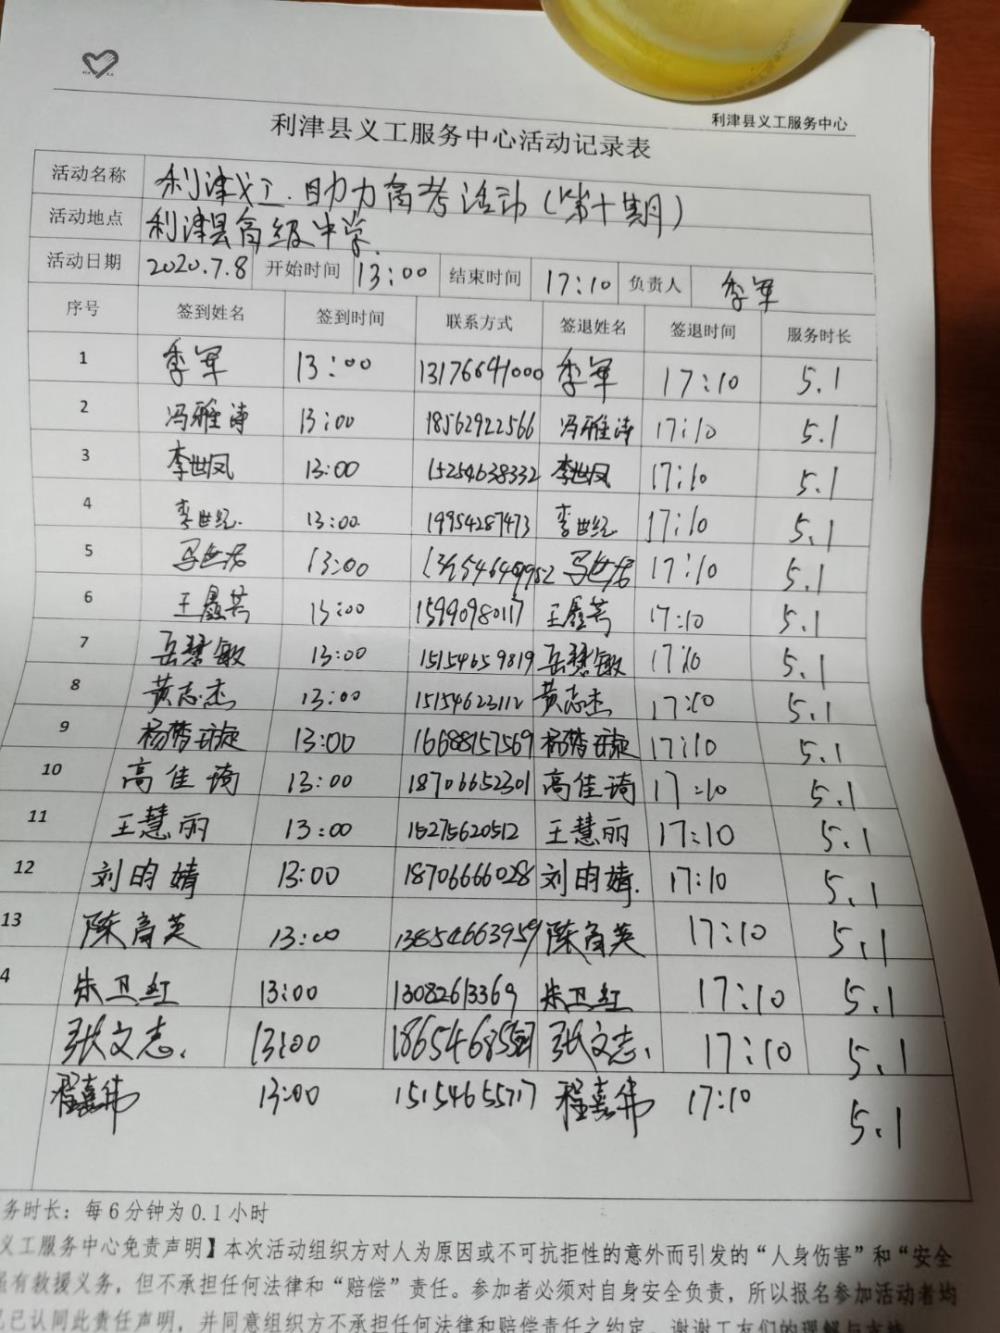 利津县义工服务中心
利津县义工服务中心活动记录表
活动名称 利津义工.助力高考活动(第十期)
活动地点 利津县高级中学.
活动日期 2020.7.8 开始时间 13:00 结束时间 17:10 负责人 李军
序号 签到姓名 签到时间 联系方式 签退姓名 签退时间 服务时长
1 李军 13:00 13176641000 李军 17:10 5.1
2 冯雅涛 13:00 18562922566 冯雅涛 17:10 5.1
3 李世凤 13:00 15254638332 李世凤 17:10 5.1
4 李世纪. 13:00 19954287473 李世纪 17:10 5.1
5 13:00 17:10 5.1
6 13:00 15990980117 17:10 5.1
7 岳慧敏 13:00 15154659819 岳慧敏 17:10 5.1
8 黄志杰 13:00 15154623112 黄志杰 17:10 5.1
9 13:00 16688157569 17:10 5.1
10 高佳琦 13:00 18706652301 高佳琦 17:10 5.1
11 王慧丽 13:00 15275620512 王慧丽 17:10 5.1
12 刘昀婧 13:00 18706666028 刘昀婧. 17:10 5.1
13 陈育英 13:00 13854663959 陈育英 17:10 5.1
4 朱卫红 13:00 13082613369 朱卫红 17:10 5.1
张文志. 13:00 张文志. 17:10 5.1
程嘉伟 13:00 15154655717 程嘉伟 17:10 5.1
务时长：每6分钟为0.1小时
义工服务中心免责声明】本次活动组织方对人为原因或不可抗拒性的意外而引发的“人身伤害”和“安全
有救援义务，但不承担任何法律和“赔偿”责任。参加者必须对自身安全负责，所以报名参加活动者均
已认同此责任声明，并同意组织方不承担任何法律和赔偿责任之约定。谢谢工友们的理解与支持